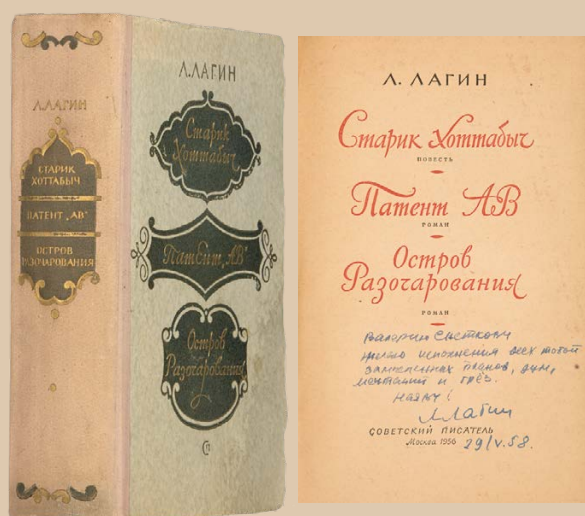 Л. ЛАГИН
СТАРИК
ХОТТАБЫЧ
ПАТЕНТ „АВ"
ОСТРОВ
РАЗОЧАРОВАНИЯ
Л. ЛАГИН
Старик
Хоттабыч
Патент „АВ"
Остров
Разочарования
Л. ЛАГИН
Старик Хоттабыч
ПОВЕСТЬ
Патент АВ
РОМАН
Остров
Разочарования
РОМАН
Валерию
исполнения всех тобой
планов, дум,
мечтаний и грёз.
Л Лагин
СОВЕТСКИЙ ПИСАТЕЛЬ
Москва 1956
29/V.58.